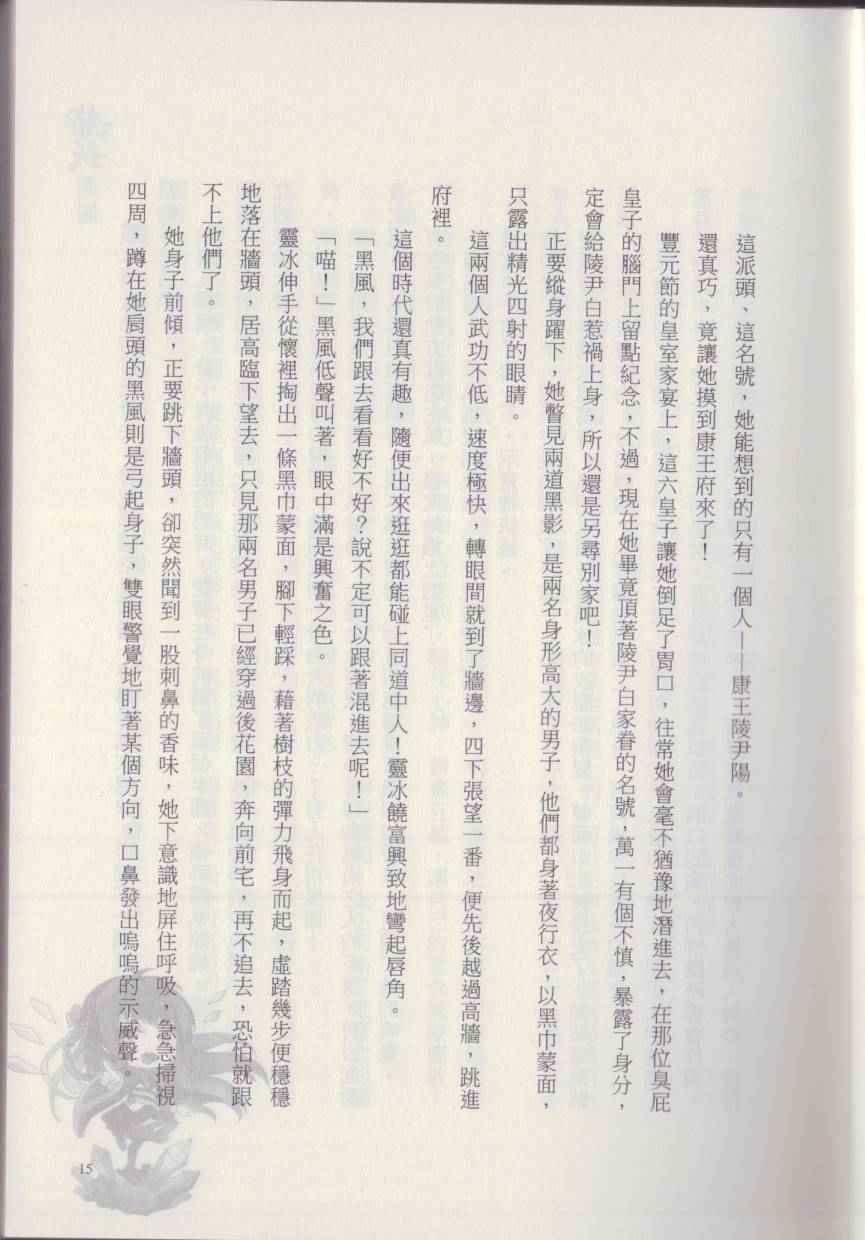 這派頭、這名號，她能想到的只有一個人——康王陵尹陽。
還真巧，竟讓她摸到康王府來了！
豐元節的皇室家宴上，這六皇子讓她倒足了胃口，往常她會毫不猶豫地潛進去，在那位臭屁
皇子的腦門上留點紀念，不過，現在她畢竟頂著陵尹白家眷的名號，萬一有個不慎，暴露了身分，
定會給陵尹白惹禍上身，所以還是另尋別家吧！
正要縱身躍下，她瞥見兩道黑影，是兩名身形高大的男子，他們都身著夜行衣，以黑巾蒙面，
只露出精光四射的眼睛。
這兩個人武功不低，速度極快，轉眼間就到了牆邊，四下張望一番，便先後越過高牆，跳進
府裡。
這個時代還真有趣，隨便出來逛逛都能碰上同道中人！靈冰饒富興致地彎起唇角。
「黑風，我們跟去看看好不好？說不定可以跟著混進去呢！」
「喵！」黑風低聲叫著，眼中滿是興奮之色。
靈冰伸手從懷裡掏出一條黑巾蒙面，腳下輕踩，藉著樹枝的彈力飛身而起，虛踏幾步便穩穩
地落在牆頭，居高臨下望去，只見那兩名男子已經穿過後花園，奔向前宅，再不追去，恐怕就跟
不上他們了。
她身子前傾，正要跳下牆頭，卻突然聞到一股刺鼻的香味，她下意識地屏住呼吸，急急掃視
四周，蹲在她肩頭的黑風則是弓起身子，雙眼警覺地盯著某個方向，口鼻發出嗚嗚的示威聲。
15